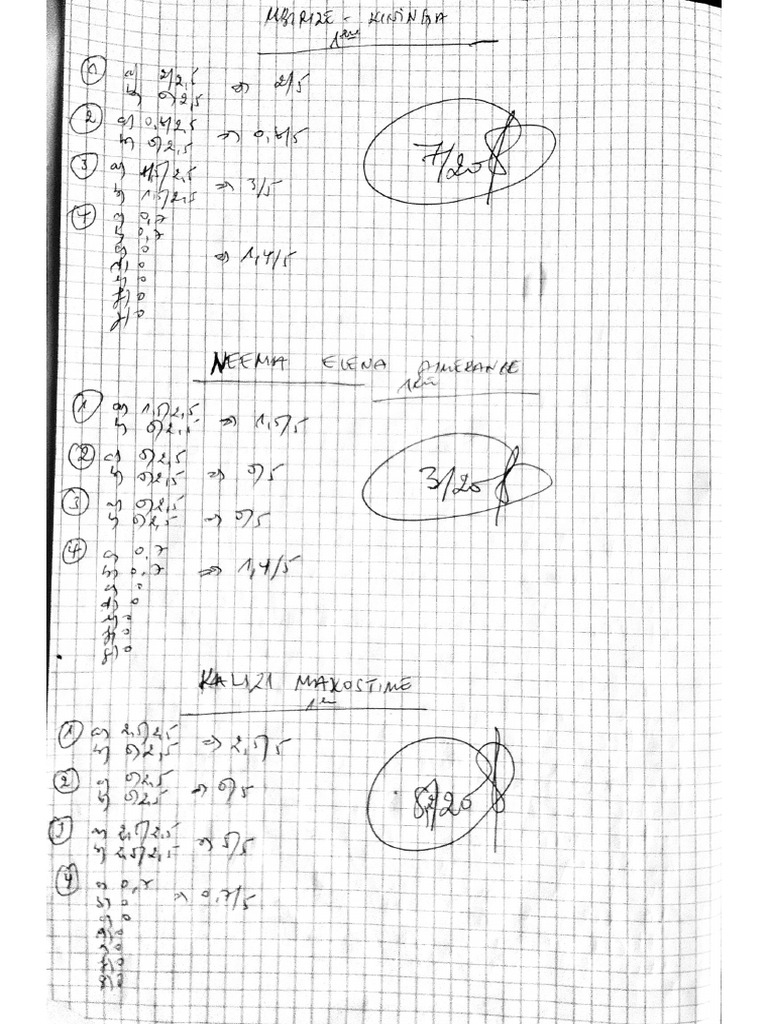 MBIRIZE - KININGA
1ère
① a) 2/2,5
b) 0/2,5 => 2/5
② a) 0,5/2,5
b) 0/2,5 => 0,5/5
③ a) 1,5/2,5
b) 1,5/2,5 => 3/5
7/20
④ a) 0,7
b) 0,7
c) 0
d) 0 => 1,4/5
e) 0
f) 0
g) 0
NEEMA ELENA AIMERANCE
1ère
① a) 1,5/2,5
b) 0/2,5 => 1,5/5
② a) 0/2,5
b) 0/2,5 => 0/5
3/20
③ a) 0/2,5
b) 0/2,5 => 0/5
④ a) 0,7
b) 0,7 => 1,4/5
c) 0
d) 0
e) 0
f) 0
g) 0
KALIZI MAXOSTIME
1ère
① a) 2,5/2,5
b) 0/2,5 => 2,5/5
② a) 0/2,5
b) 0/2,5 => 0/5
8,2/20
③ a) 2,5/2,5
b) 2,5/2,5 => 5/5
④ a) 0,7
b) 0 => 0,7/5
c) 0
d) 0
e) 0
f) 0
g) 0